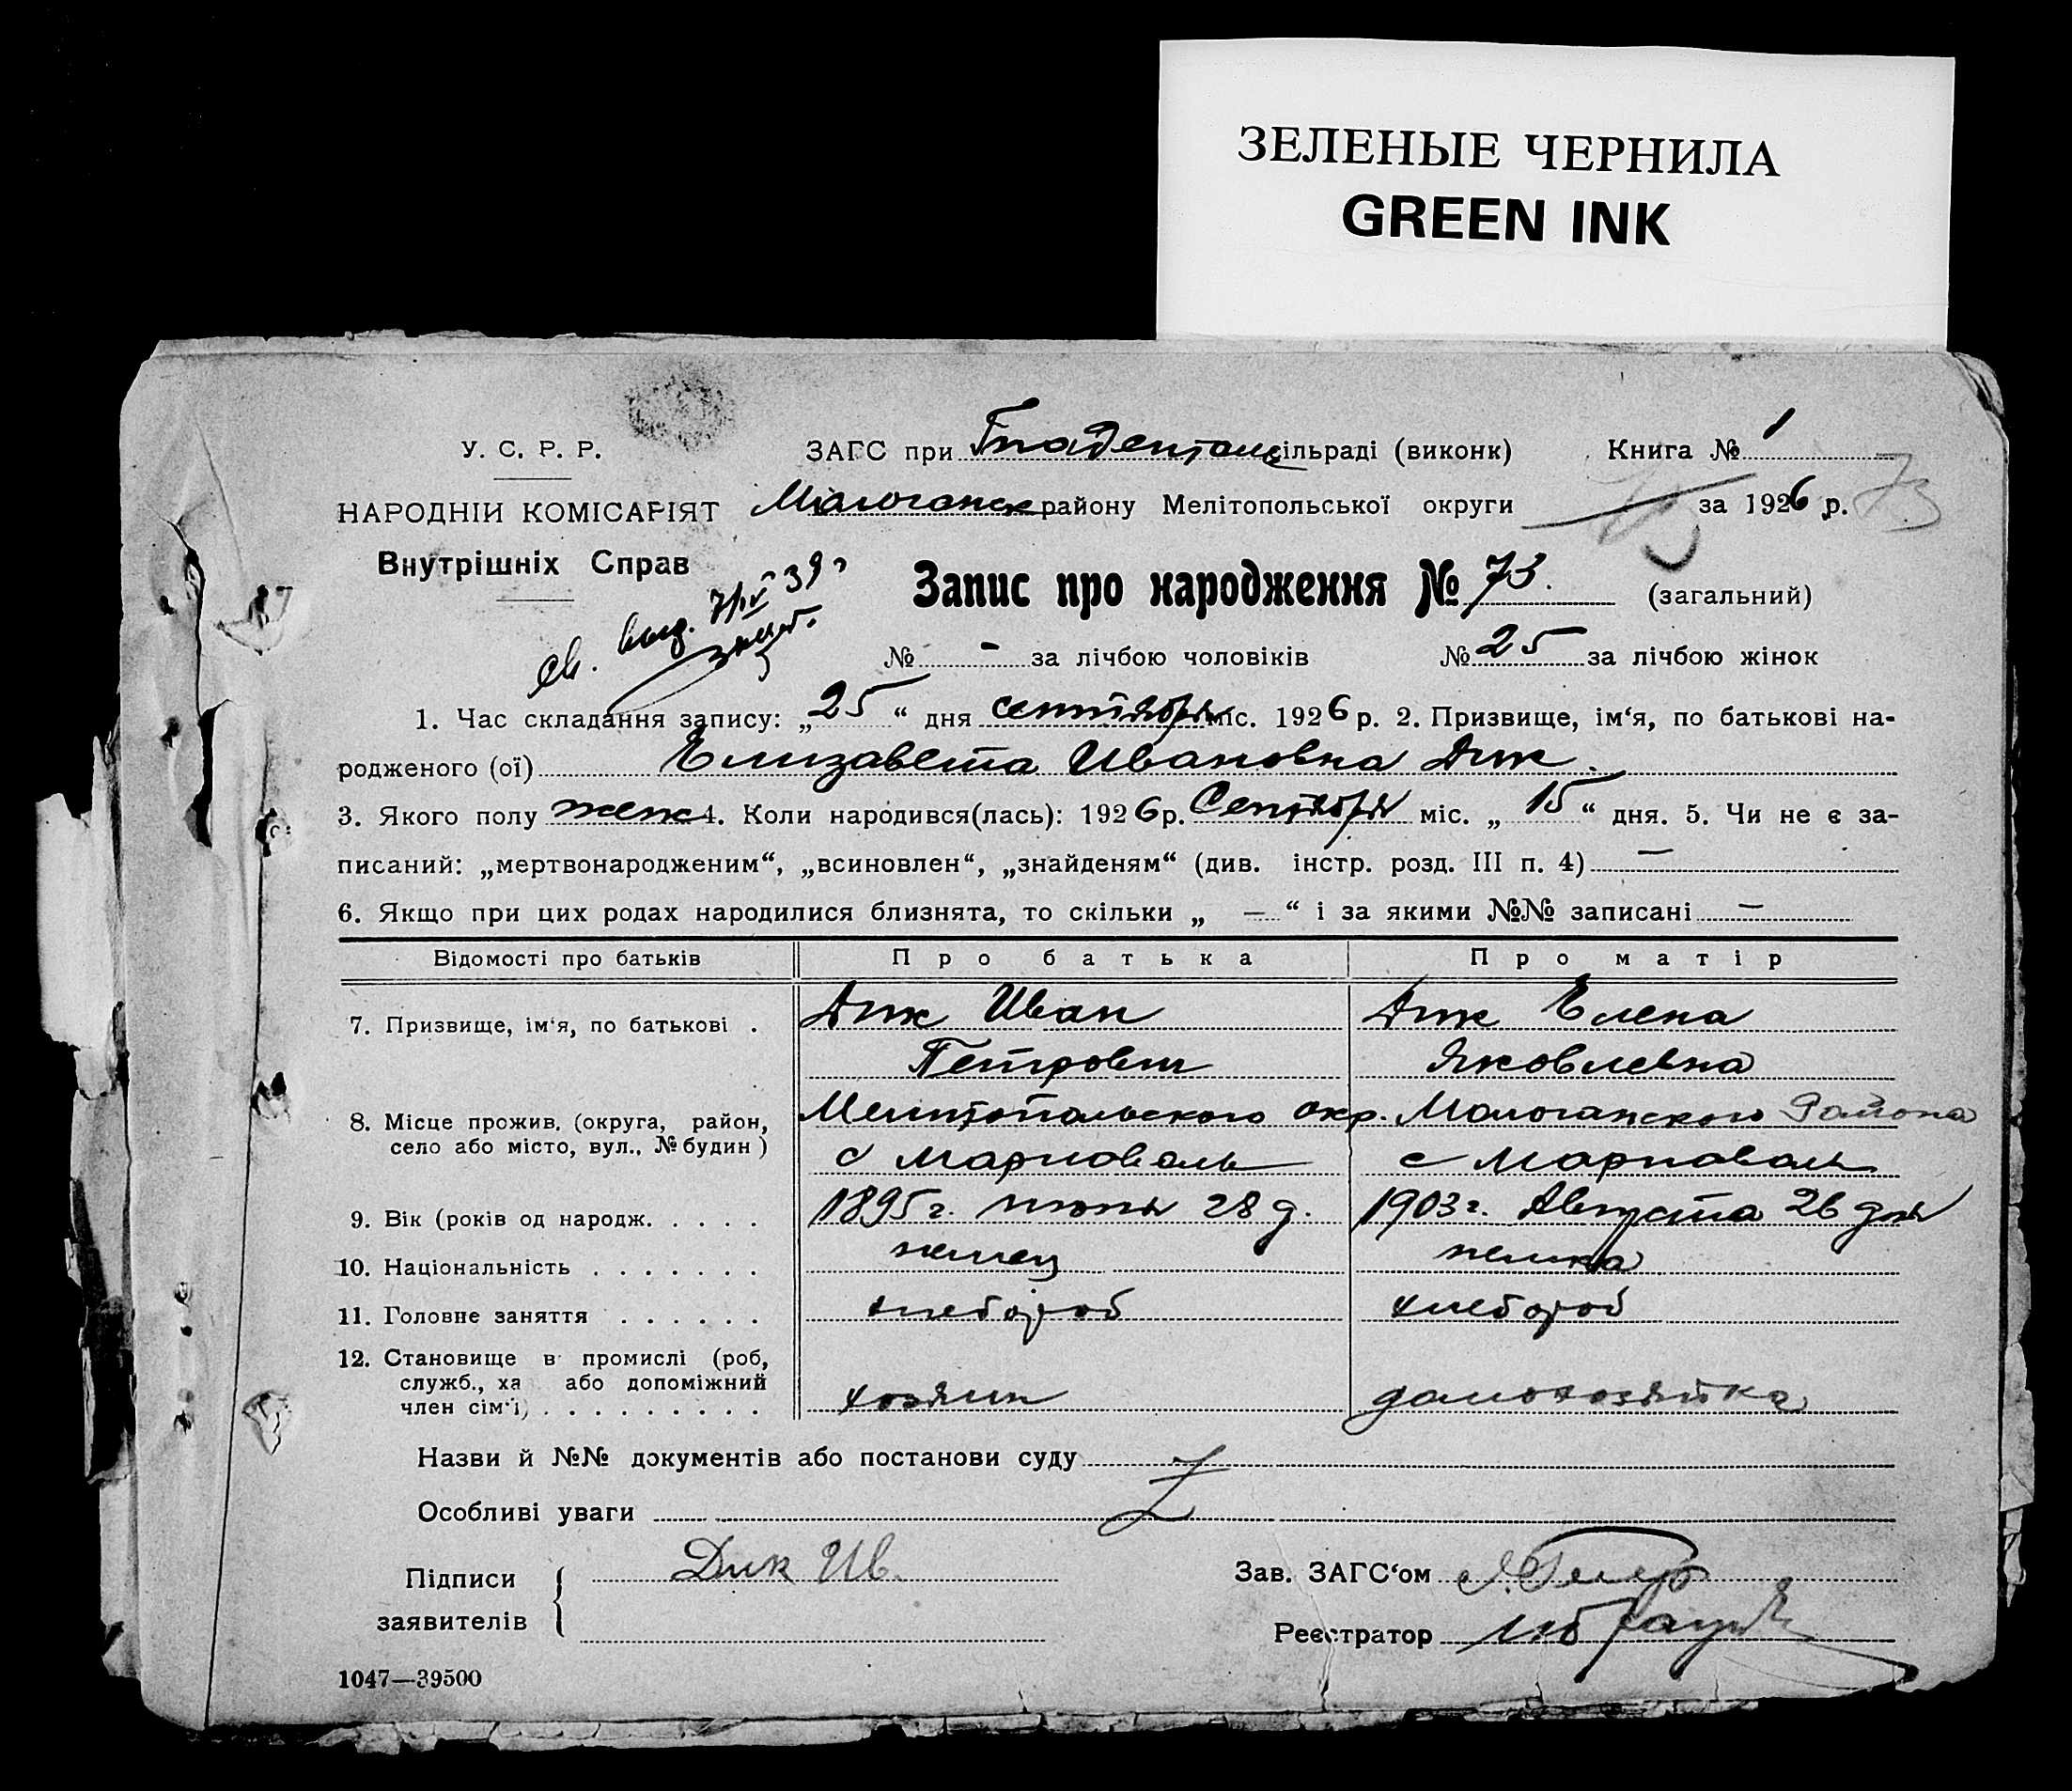 ЗЕЛЕНЫЕ ЧЕРНИЛА
GREEN INK
У. С. Р. Р.
ЗАГС при Гнаденталь сільраді (виконк) Книга № 1
НАРОДНІЙ КОМІСАРІЯТ
Молочанск району Мелітопольської округи за 1926 р. 73
Внутрішніх Справ
Запис про народження № 73. (загальний)
№ - за лічбою чоловіків № 25 за лічбою жінок
1. Час складання запису: „25“ дня сентября міс. 1926 р. 2. Призвище, ім‘я, по батькові на-
родженого (ої) Елизавета Ивановна Дик.
3. Якого полу жен 4. Коли народився(лась): 1926 р. Сентября міс. „15“ дня. 5. Чи не є за-
писаний: „мертвонародженим“, „всиновлен“, „знайденям“ (див. інстр. розд. III п. 4) —
6. Якщо при цих родах народилися близнята, то скільки „ — “ і за якими №№ записані —
Відомості про батьків Про батька Про матір
7. Призвище, ім‘я, по батькові . Дик Иван Дик Елена
Петрович Яковлевна
8. Місце прожив. (округа, район, Мелитопольского окр. Молочанского Района
село або місто, вул., № будин) с Мариаволь с Мариаволь
9. Вік (років од народж. . . . . 1895 г. июня 28 д. 1903 г. Августа 26 дня
10. Національність . . . . . . . немец немка
11. Головне заняття . . . . . . хлебороб хлебороб
12. Становище в промислі (роб,
служб., ха або допоміжний
член сім‘ї) . . . . . . . . . хозяин домохозяйка
Назви й №№ документів або постанови суду
Особливі уваги
Підписи Дик Ив. Зав. ЗАГС‘ом
заявителів
Реєстратор
1047—39500